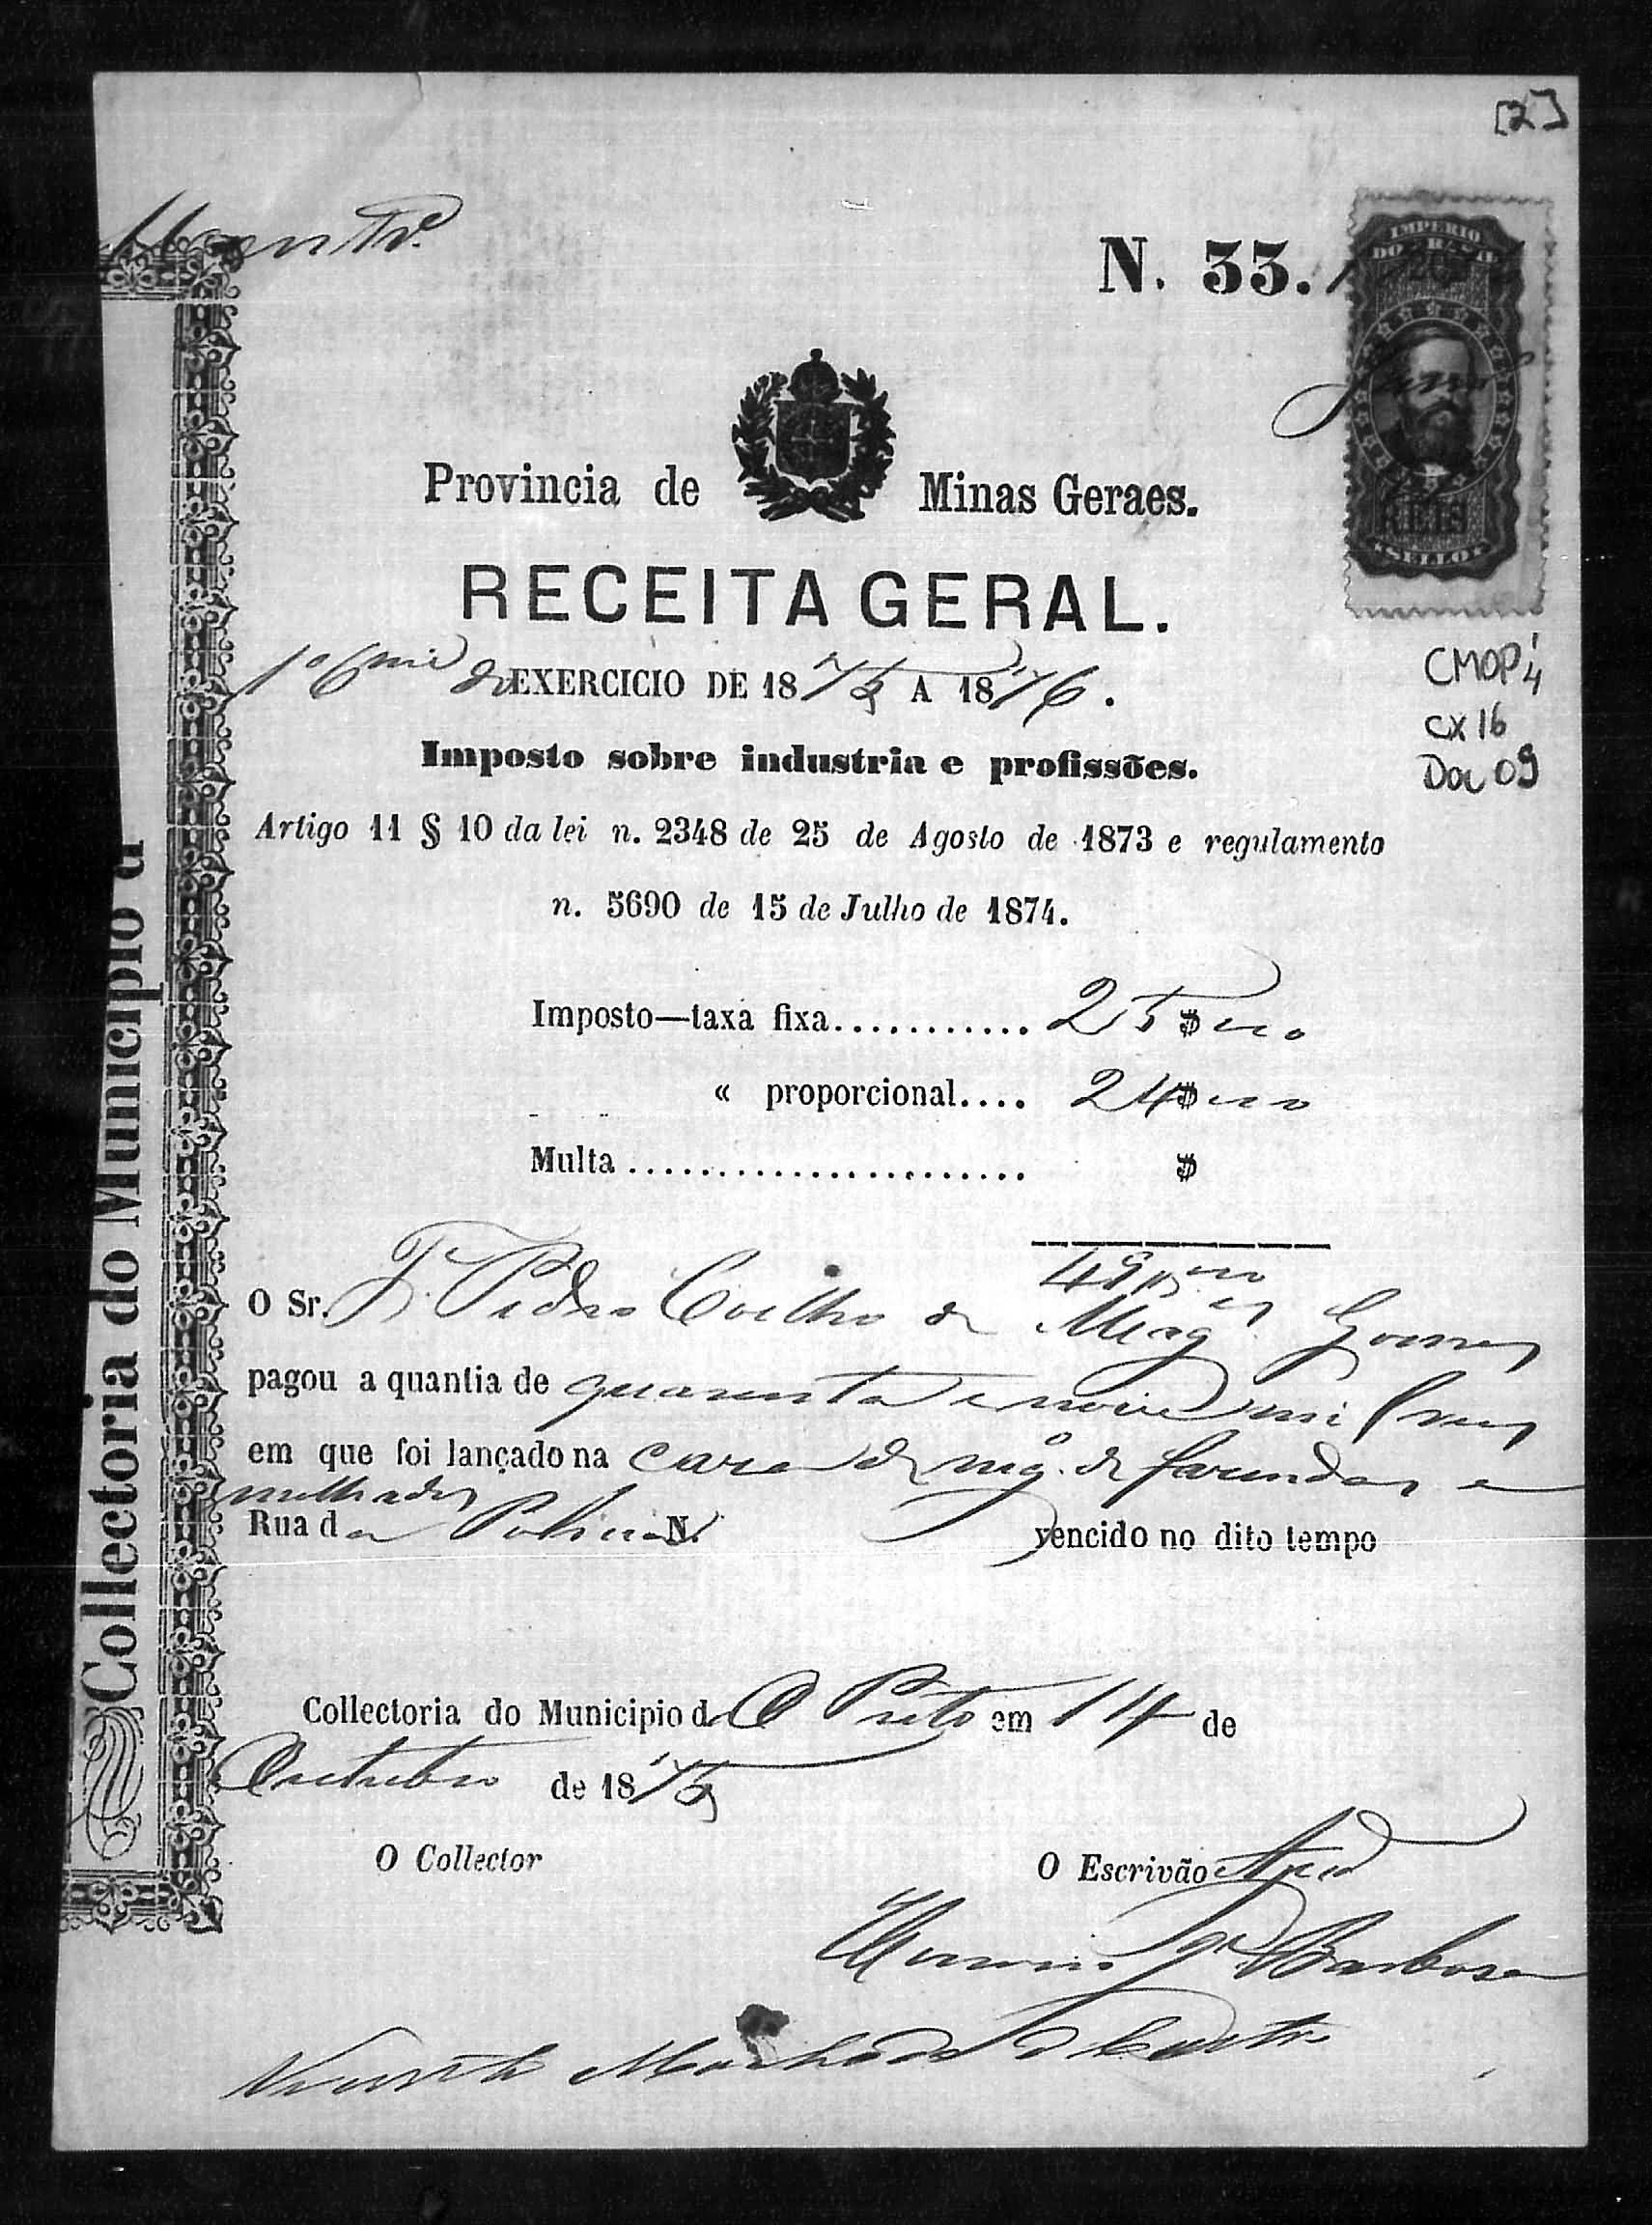 [2]
N. 33.
IMPERIO
DO BRAZIL
REIS
SELLO
Provincia de Minas Geraes.
RECEITA GERAL.
1º 6mce do EXERCICIO DE 1875 A 1876.
CMOP 4
cx 16
Doc 09
Imposto sobre industria e profissões.
Artigo 11 § 10 da lei n. 2348 de 25 de Agosto de 1873 e regulamento
n. 5690 de 15 de Julho de 1874.
Imposto—taxa fixa........... 25$000
« proporcional.... 24$000
Multa ...................... $
49$000
O Sr. Pedro Coelho de Mag.es Gomes
pagou a quantia de quarenta e nove mil reis
em que foi lançado na casa de neg.o de fazendas e
molhados
Rua da N. vencido no dito tempo
Collectoria do Municipio d O Preto em 14 de
Outubro de 1875
O Collector
O Escrivão
Barbosa
Machado de Castro
Collectoria do Municipio d